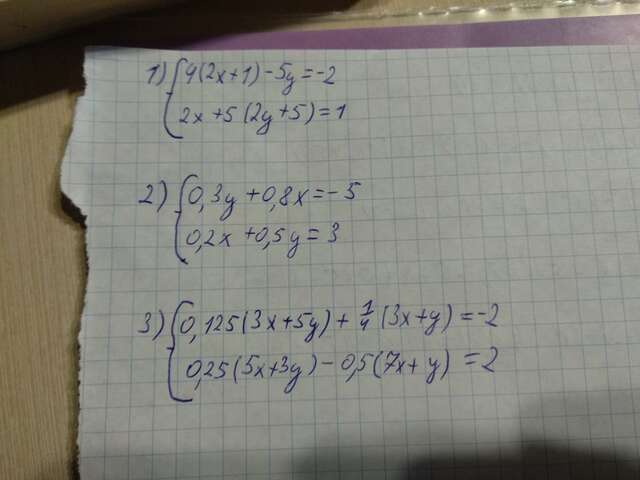 1) { 4(2x+1)-5y=-2
2x+5(2y+5)=1
2) { 0,3y+0,8x=-5
0,2x+0,5y=3
3) { 0,125(3x+5y)+1/4(3x+y)=-2
0,25(5x+3y)-0,5(7x+y)=2